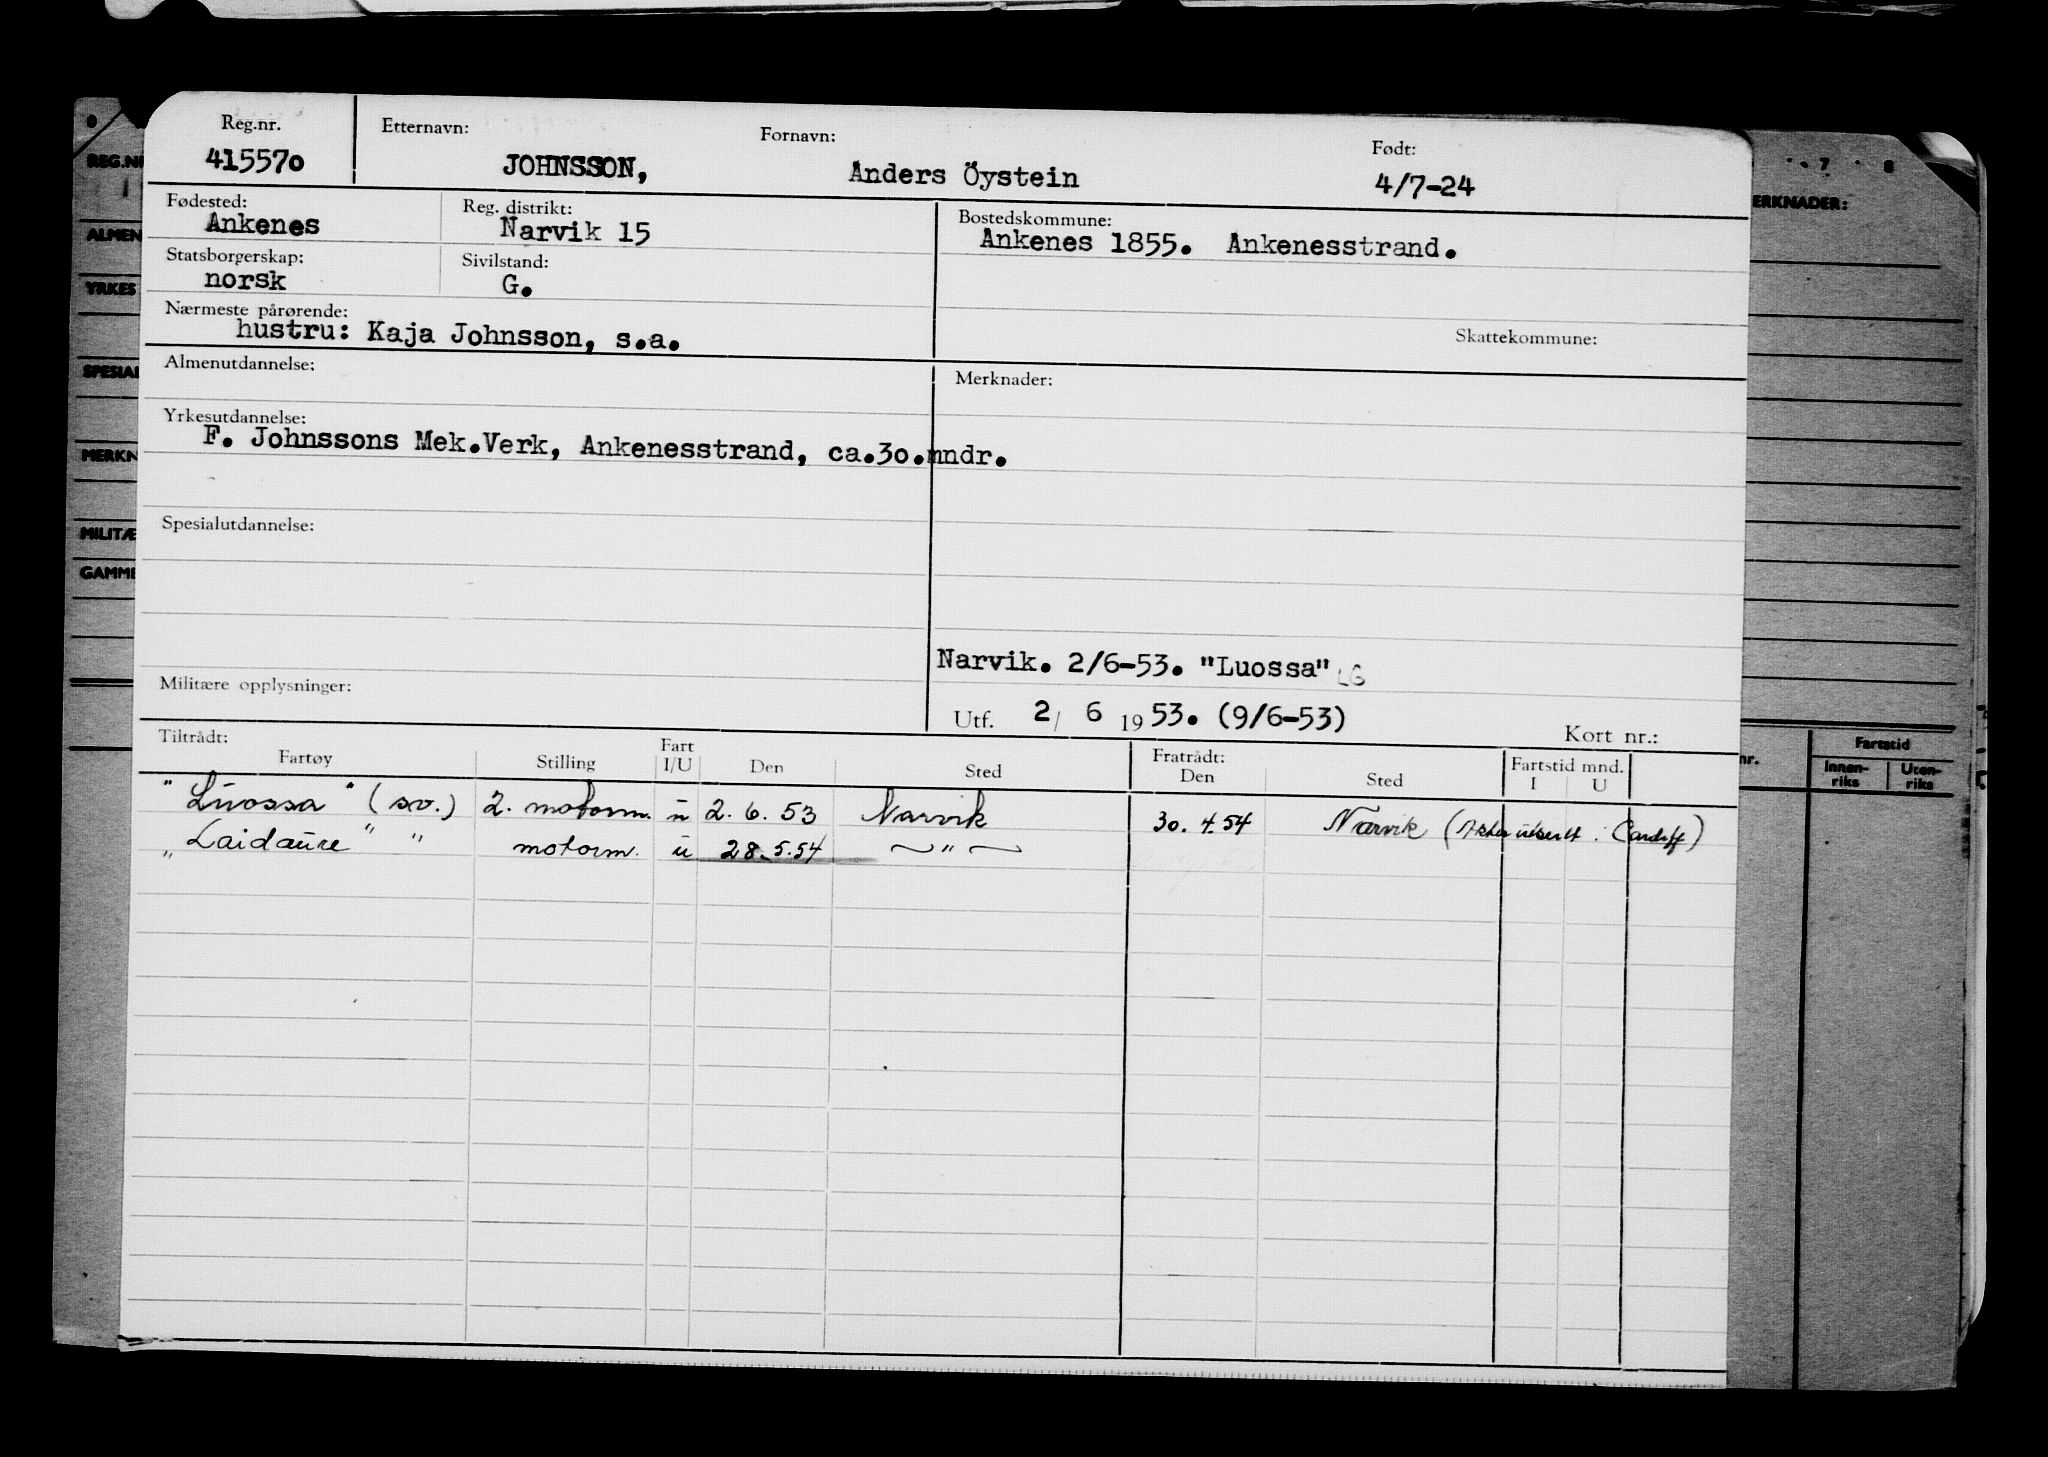 Reg.nr. Etternavn: Fornavn: Født:
415570 JOHNSSON, Anders Öystein 4/7-24
Fødested: Reg. distrikt: Bostedskommune:
Ankenes Narvik 15 Ankenes 1855. Ankenesstrand.
Statsborgerskap: Sivilstand:
norsk G.
Nærmeste pårørende: Skattekommune:
hustru: Kaja Johnsson, s.a.
Almenutdannelse: Merknader:
Yrkesutdannelse:
F. Johnssons Mek.Verk, Ankenesstrand, ca.3o.mndr.
Spesialutdannelse:
Narvik. 2/6-53. "Luossa" LG
Militære opplysninger:
Utf. 2/ 6 1953. (9/6-53) Kort nr.:
Tiltrådt: Fart Fratrådt: Fartstid mnd.
Fartøy Stilling I/U Den Sted Den Sted I U
"Luossa" (sv.) 2. motorm. u 2. 6. 53 Narvik 30. 4. 54 Narvik ( i Cardiff)
"Laidaure" " motorm. u 28.5.54 — " —
REG.NR
ALMEN
YRKES
SPESIAL
MERKN
MILITÆ
GAMME
7 8
ERKNADER:
nr. Fartstid
Innen- Uten-
riks riks